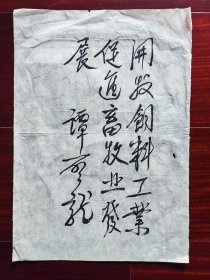 開放飼料工業
促進畜牧业發
展 譚啓龍